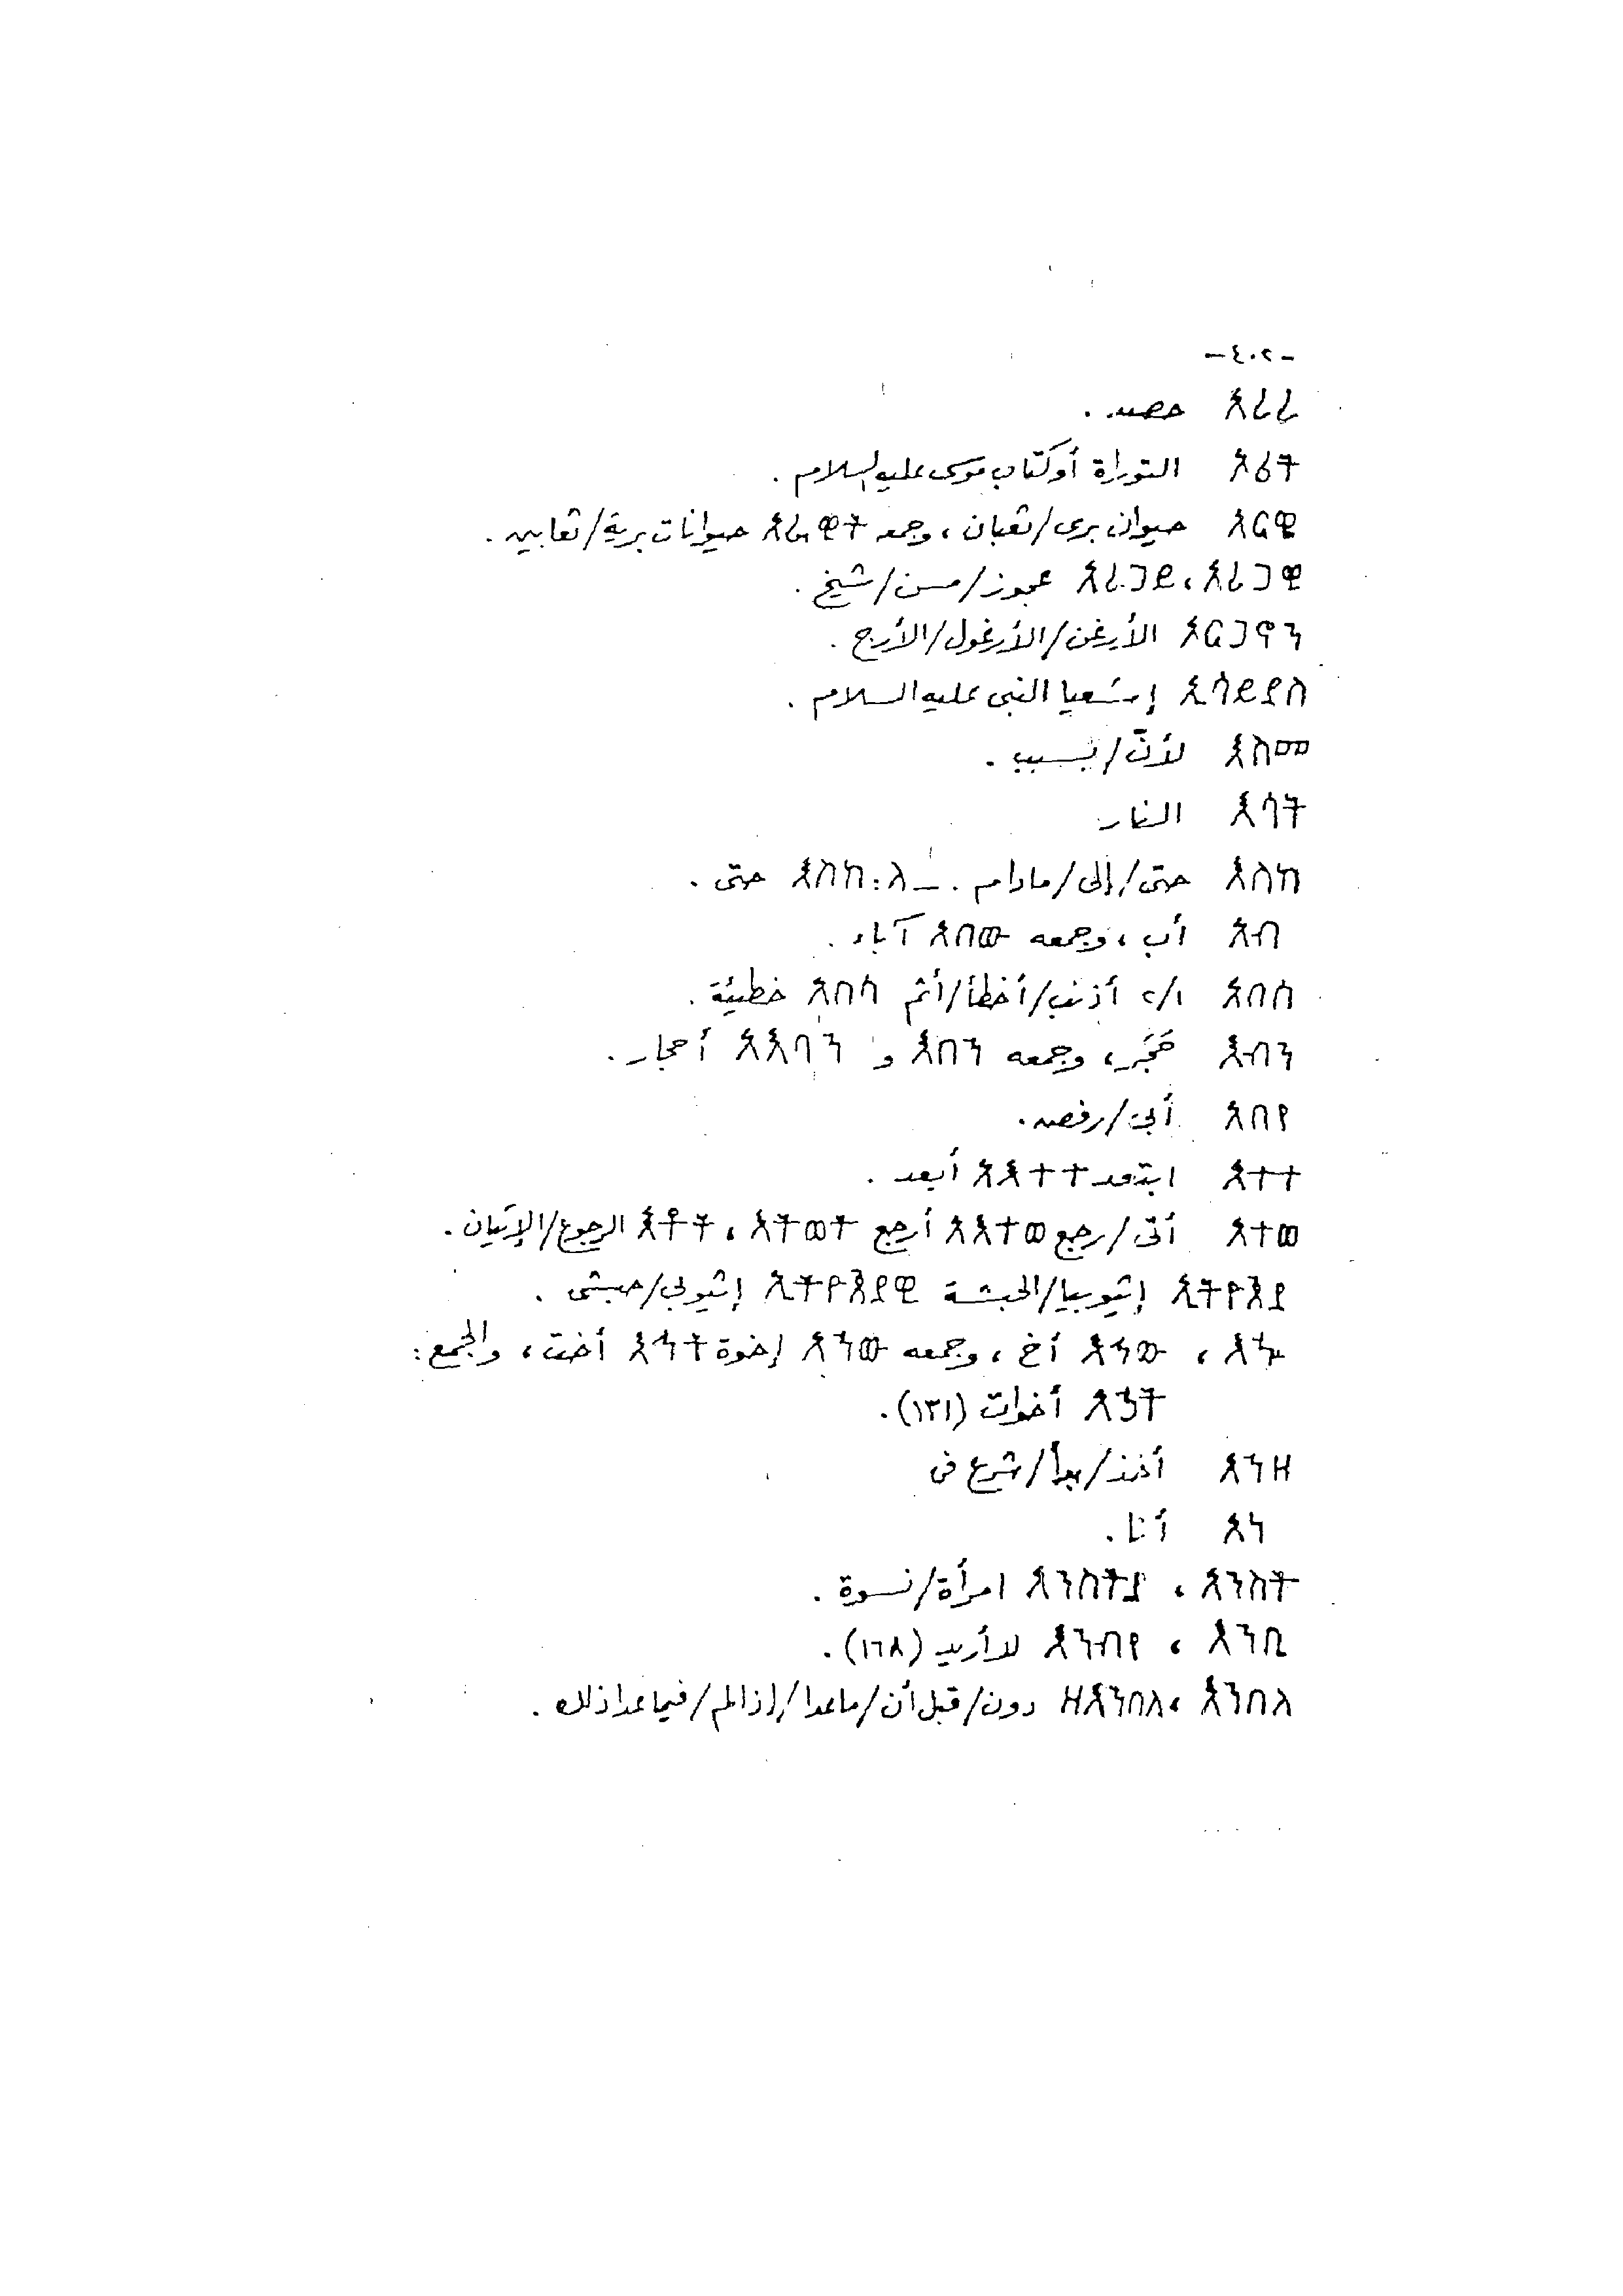 -٤٠٢-
አረረ حصد .
ኦሪት التوراة أو كتاب موسى عليه السلام .
አርዌ حيوان برى/ثعبان ، وجمعه አራዊት حيوانات برية/ثعابين .
አረጋዊ ، አረጋይ عجوز/مسن/شيخ .
እርጋኖን الأرغن/الأرغول/الأرج .
ኢሳይያስ إشعيا النبى عليه السلام .
እስመ لأنّ/بسبب .
እሳት النار
እስከ حتى/إلى/مادام . — እስከ፡ለ حتى .
አብ أب ، وجمعه አበው آباء .
አበሰ ٢/١ أذنب/أخطأ/أثم አበሳ خطيئة .
እብን حَجَر ، وجمعه እበን و አእባን أحجار .
አበየ أبى/رفض .
አተተ ابتعد አአተተ أبعد .
አተወ أتى/رجع አእተወ أرجع እትወት ، እቶት الرجوع/الإتيان .
ኢትዮጵያ إثيوبيا/الحبشة ኢትዮጵያዊ إثيوبى/حبشى .
እኁ ، እኅው أخ ، وجمعه አኀው إخوة እኅት أخت ، والجمع :
አኃት أخوات (١٣١) .
አኀዘ أخذ/بدأ/شرع فى
አነ أنا .
አንስት ، አንስትያ امرأة/نسوة .
እንቢ ، እንብየ لا أريد (١٦٨) .
እንበለ ، ዘእንበለ دون/قبل أن/ماعدا/إذا لم/فيما عدا ذلك .